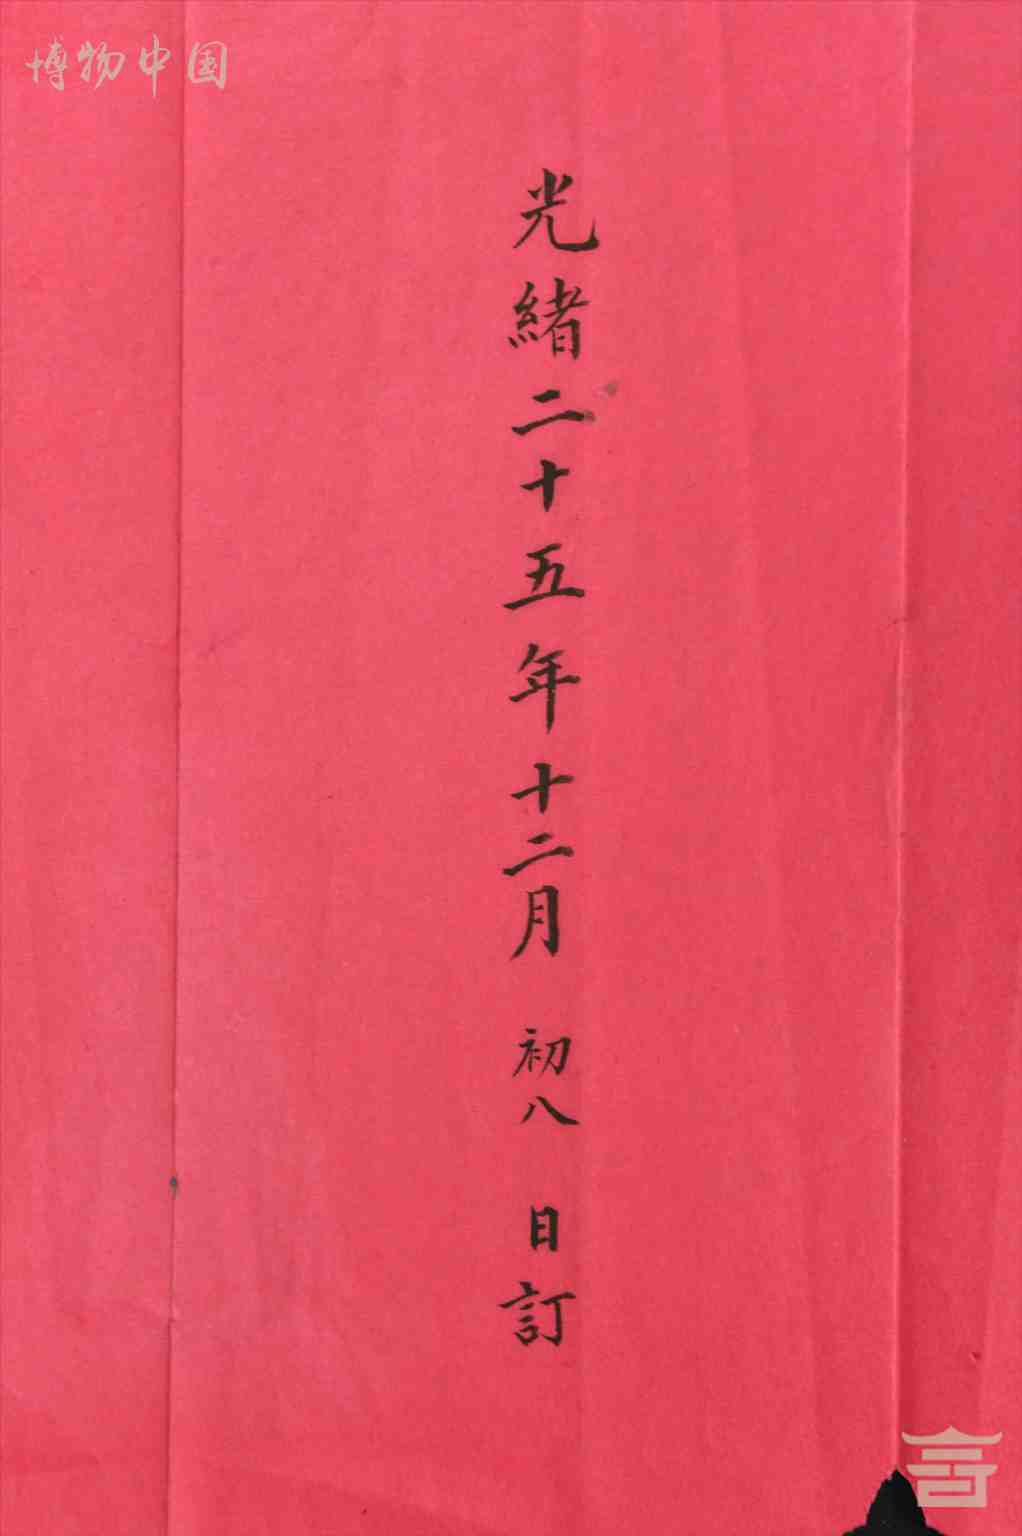 博物中国
光緒二十五年十二月 初八 日訂